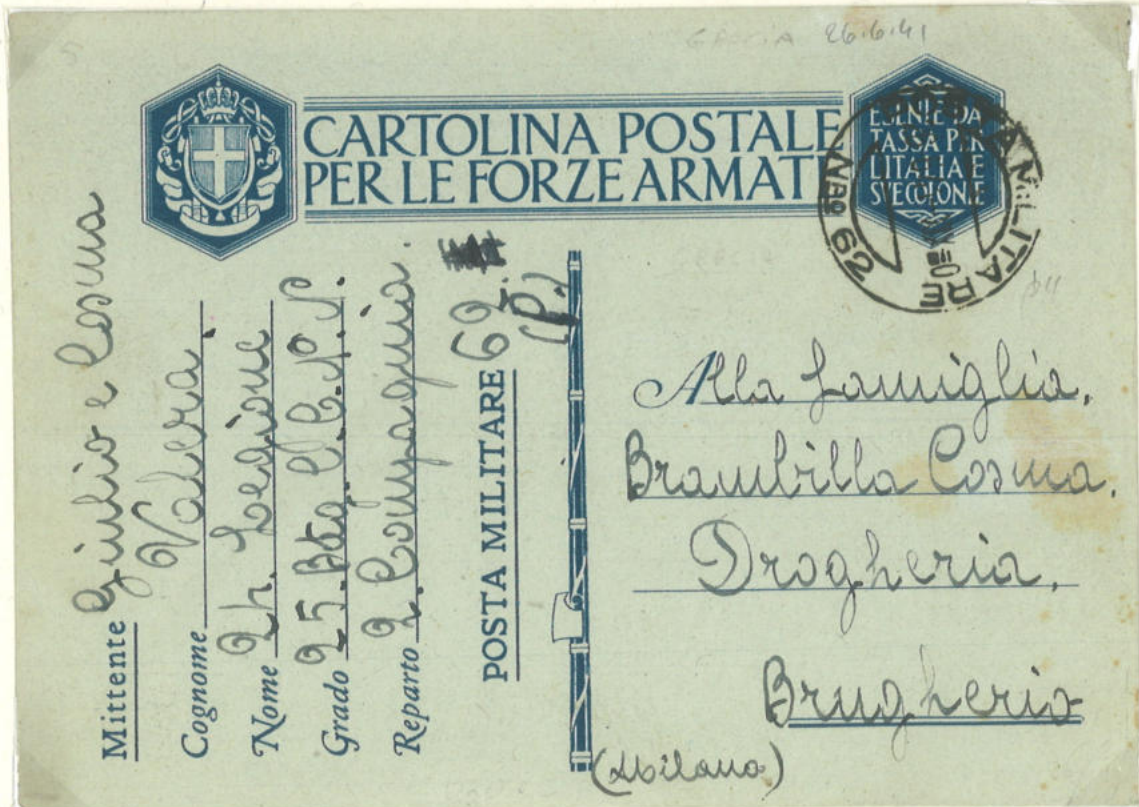 GRECIA 26.6.41
CARTOLINA POSTALE
PER LE FORZE ARMATE
ESENTE DA
TASSA PER
L'ITALIA E
SVE COLONIE
POSTA MILITARE
62
Mittente Giulio e Cosma
Cognome Valera
Nome 24 Legione
Grado 25. Btg. C.C.N.N.
Reparto 2. Compagnia.
POSTA MILITARE 62.
(P.)
Alla famiglia,
Brambilla Cosma,
Drogheria,
Brugherio
(Milano)